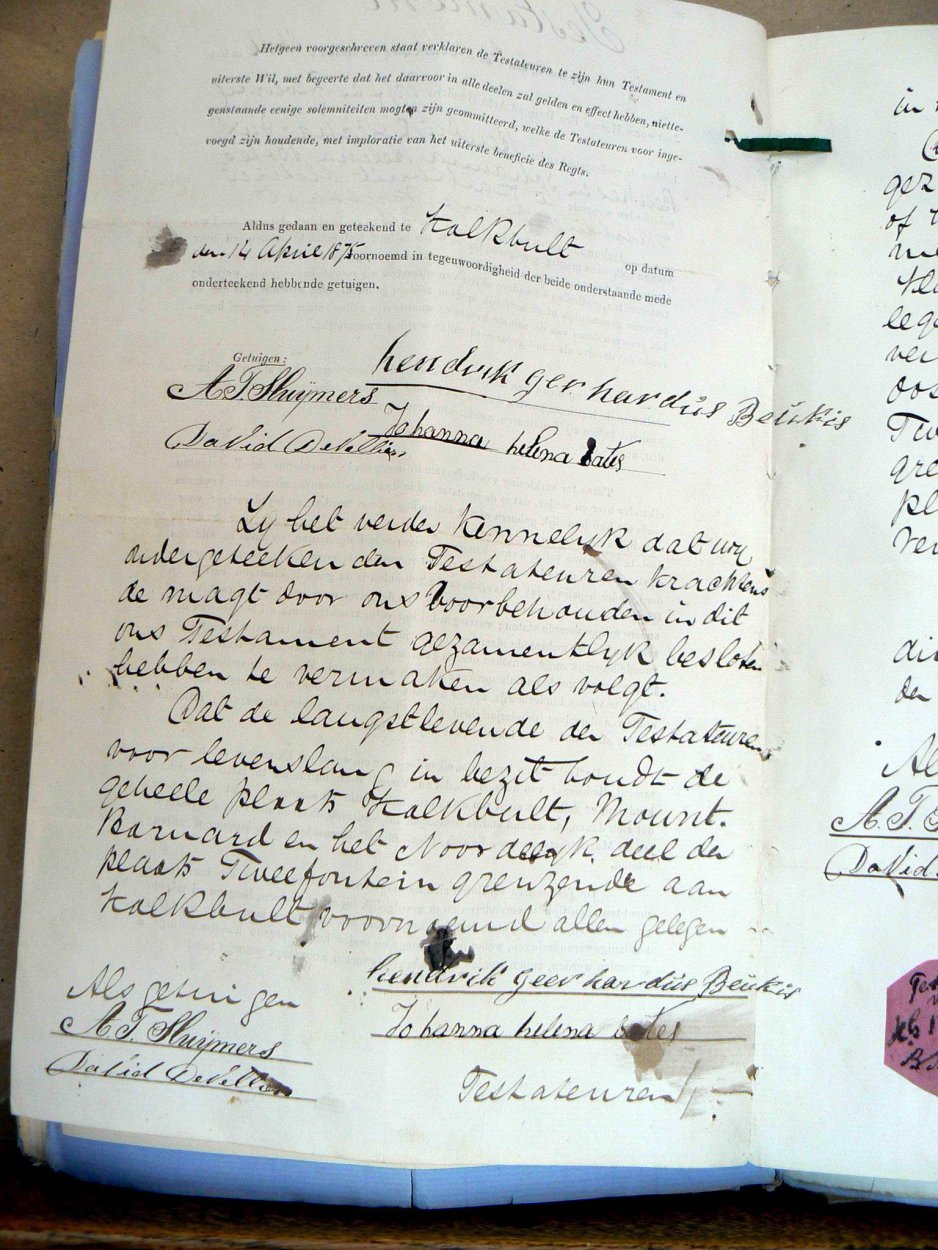 Hetgeen voorgeschreven staat verklaren de Testateuren te zijn hun Testament en
uiterste Wil, met begeerte dat het daarvoor in alle deelen zal gelden en effect hebben, niette-
genstaande eenige solemniteiten mogten zijn geommitteerd, welke de Testateuren voor inge-
voegd zijn houdende, met imploratie van het uiterste beneficie des Regts.
Aldus gedaan en geteekend te Kalkbult op datum
den 14 April 1875 voornoemd in tegenwoordigheid der beide onderstaande mede
onderteekend hebbende getuigen.
Getuigen:
hendrik gerhardus Beukis
A.F. Sluijmers
Johanna helena bates
David DeVillier
Zy het verder kennelyk dat wy
ondergeteekenden Testateuren krachtens
de magt door ons voorbehouden in dit
ons Testament gezamentlyk besloten
hebben te vermaken als volgt.
Dat de langstlevende der Testateuren
voor levenslang in bezit houdt de
geheele plaats Kalkbult, Mount.
Barnard en het Noordelyk deel der
plaats Tweefontein grenzende aan
Kalkbult voornoemd allen gelegen
hendrik geerhardus Beukis
Als getuigen
A.F. Sluijmers
Johanna helena bates
David DeVillier
Testateuren
in
gez
of
me
lege
ver
oos
Twe
gre
pl
ver
di
der
Al
A.F.
David